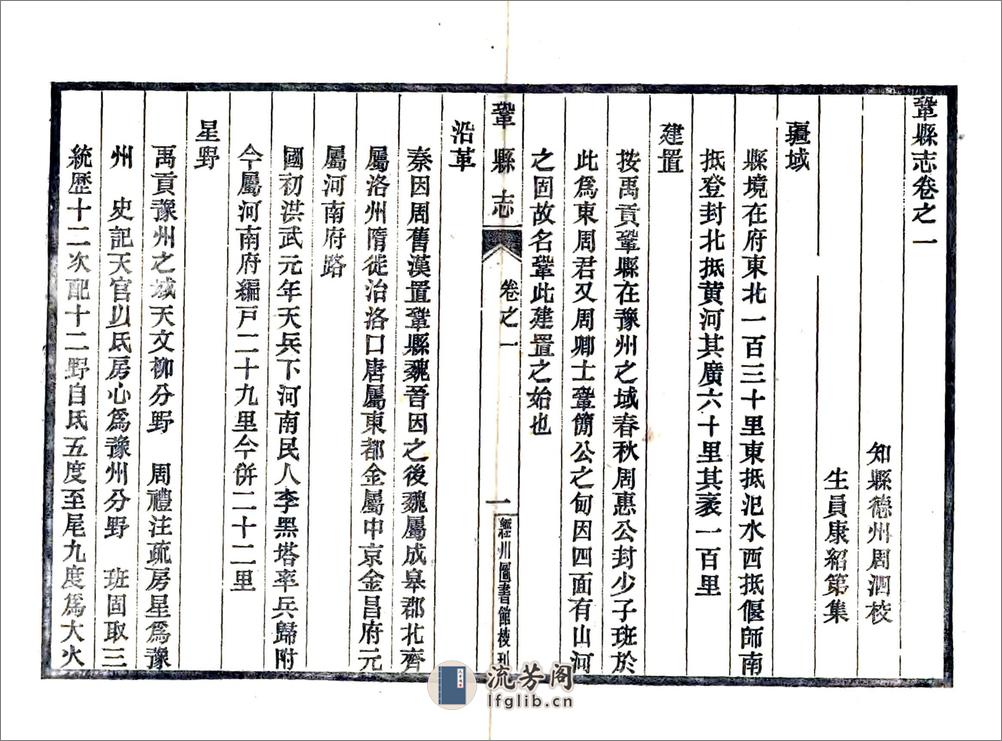 鞏縣志卷之一
知縣德州周泗校
生員康紹第集
疆域
縣境在府東北一百三十里東抵汜水西抵偃師南
抵登封北抵黃河其廣六十里其袤一百里
建置
按禹貢鞏縣在豫州之域春秋周惠公封少子班於
此為東周君又周卿士鞏簡公之甸因四面有山河
之固故名鞏此建置之始也
鞏縣志
卷之一
一
經川圖書館校刊
沿革
秦因周舊漢置鞏縣魏晉因之後魏屬成皋郡北齊
屬洛州隋徙治洛口唐屬東都金屬中京金昌府元
屬河南府路
國初洪武元年天兵下河南民人李黑塔率兵歸附
今屬河南府編戶二十九里今併二十二里
星野
禹貢豫州之域天文柳分野　周禮注疏房星為豫
州　史記天官以氐房心為豫州分野　班固取三
統歷十二次配十二野自氐五度至尾九度為大火
流芳阁
lfglib.cn